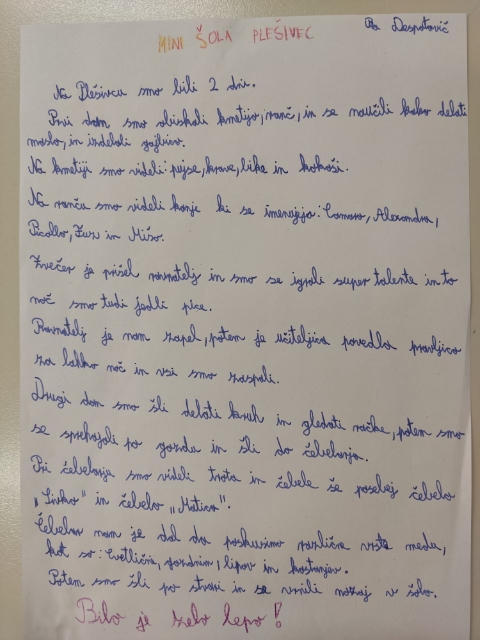 Pia Despotović
MINI ŠOLA PLEŠIVEC
Na Plešivcu smo bili 2 dni.
Prvi dan smo obiskali kmetijo, ranč, in se naučili kako delati
maslo, in izdelali gajbico.
Na kmetiji smo videli: pujse, krave, bike in kokoši.
Na ranču smo videli konje ki se imenujejo: Camaro, Alexandra,
Picollo, Žuži in Mišo.
Zvečer je prišel ravnatelj in smo se igrali super talente in to
noč smo tudi jedli pice.
Ravnatelj je nam zapel, potem je učiteljica povedla pravljico
za lahko noč in vsi smo zaspali.
Drugi dan smo šli delati kruh in gledati račke, potem smo
se sprehajali po gozdu in šli do čebelarja.
Pri čebelarju smo videli trota in čebele še posebej čebelo
„Livko" in čebelo „Matica".
Čebelar nam je dal da poskusimo različne vrste medu,
kot so: Cvetlični, gozdnim, lipov in kostanjev.
Potem smo šli po stvari in se vrnili nazaj v šolo.
Bilo je zelo lepo!